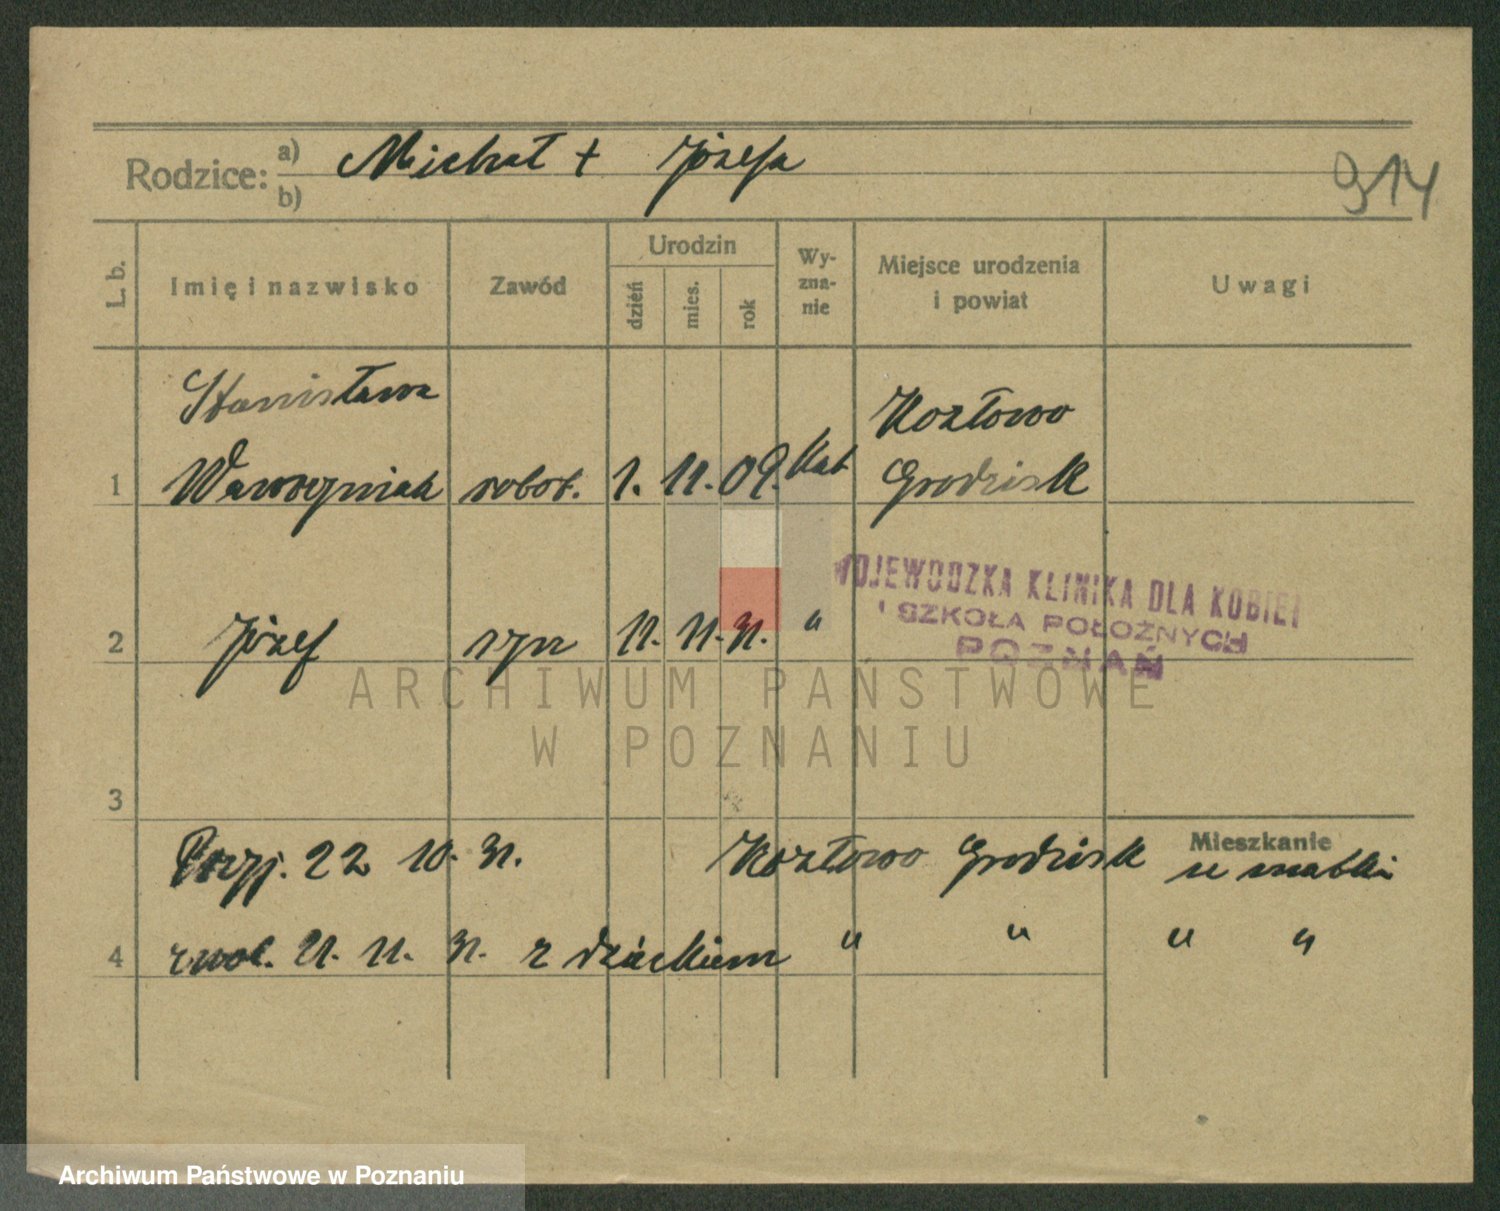 Rodzice: a) Michał + Józefa
b)
914
L. b. Imię i nazwisko Zawód Urodzin dzień mies. rok Wy-zna-nie Miejsce urodzenia i powiat Uwagi
Stanisława Kozłowo
1 Wawrzyniak robot. 1. 11. 09. Kat Grodzisk
WOJEWÓDZKA KLINIKA DLA KOBIET
I SZKOŁA POŁOŻNYCH
POZNAŃ
2 Józef syn 11. 11. 31. "
ARCHIWUM PAŃSTWOWE
W POZNANIU
3
Mieszkanie
Przyj. 22 10. 31. Kozłowo Grodzisk u matki
4 zwol. 21. 11. 31. z dzieckiem " " " "
Archiwum Państwowe w Poznaniu